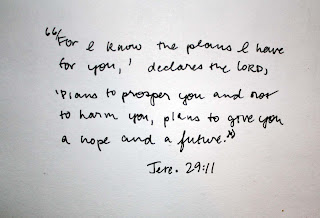 "'For I know the plans I have
for you,' declares the LORD,
'Plans to prosper you and not
to harm you, plans to give you
a hope and a future.'"
Jere. 29:11